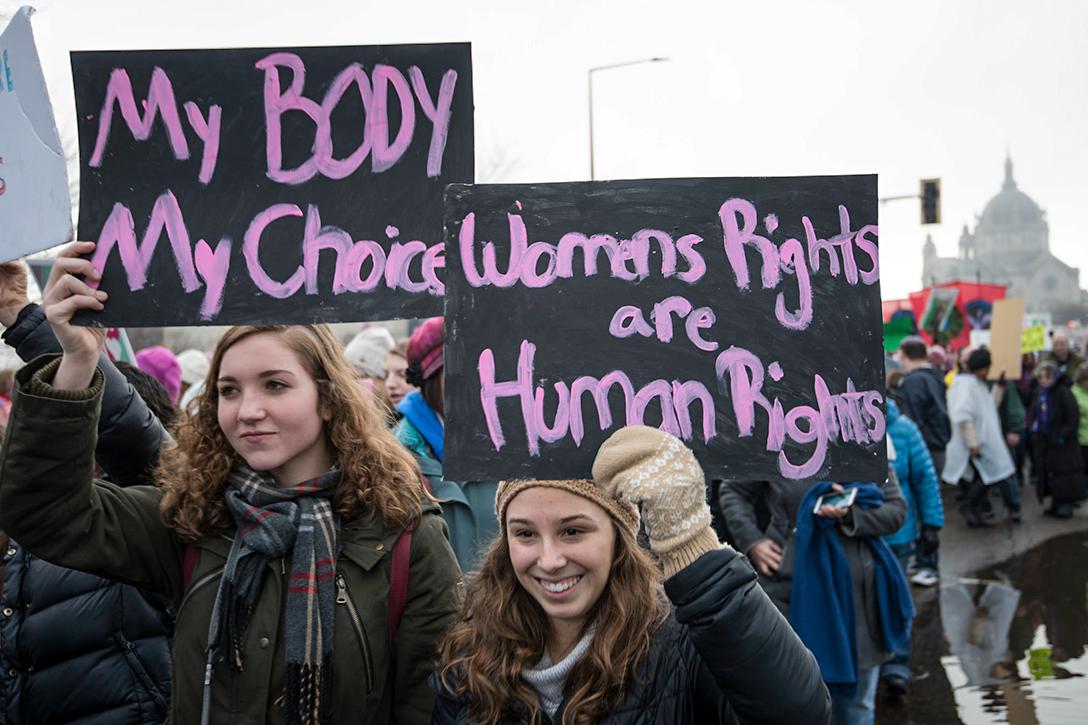 My BODY
My Choice
Womens Rights
are
Human Rights